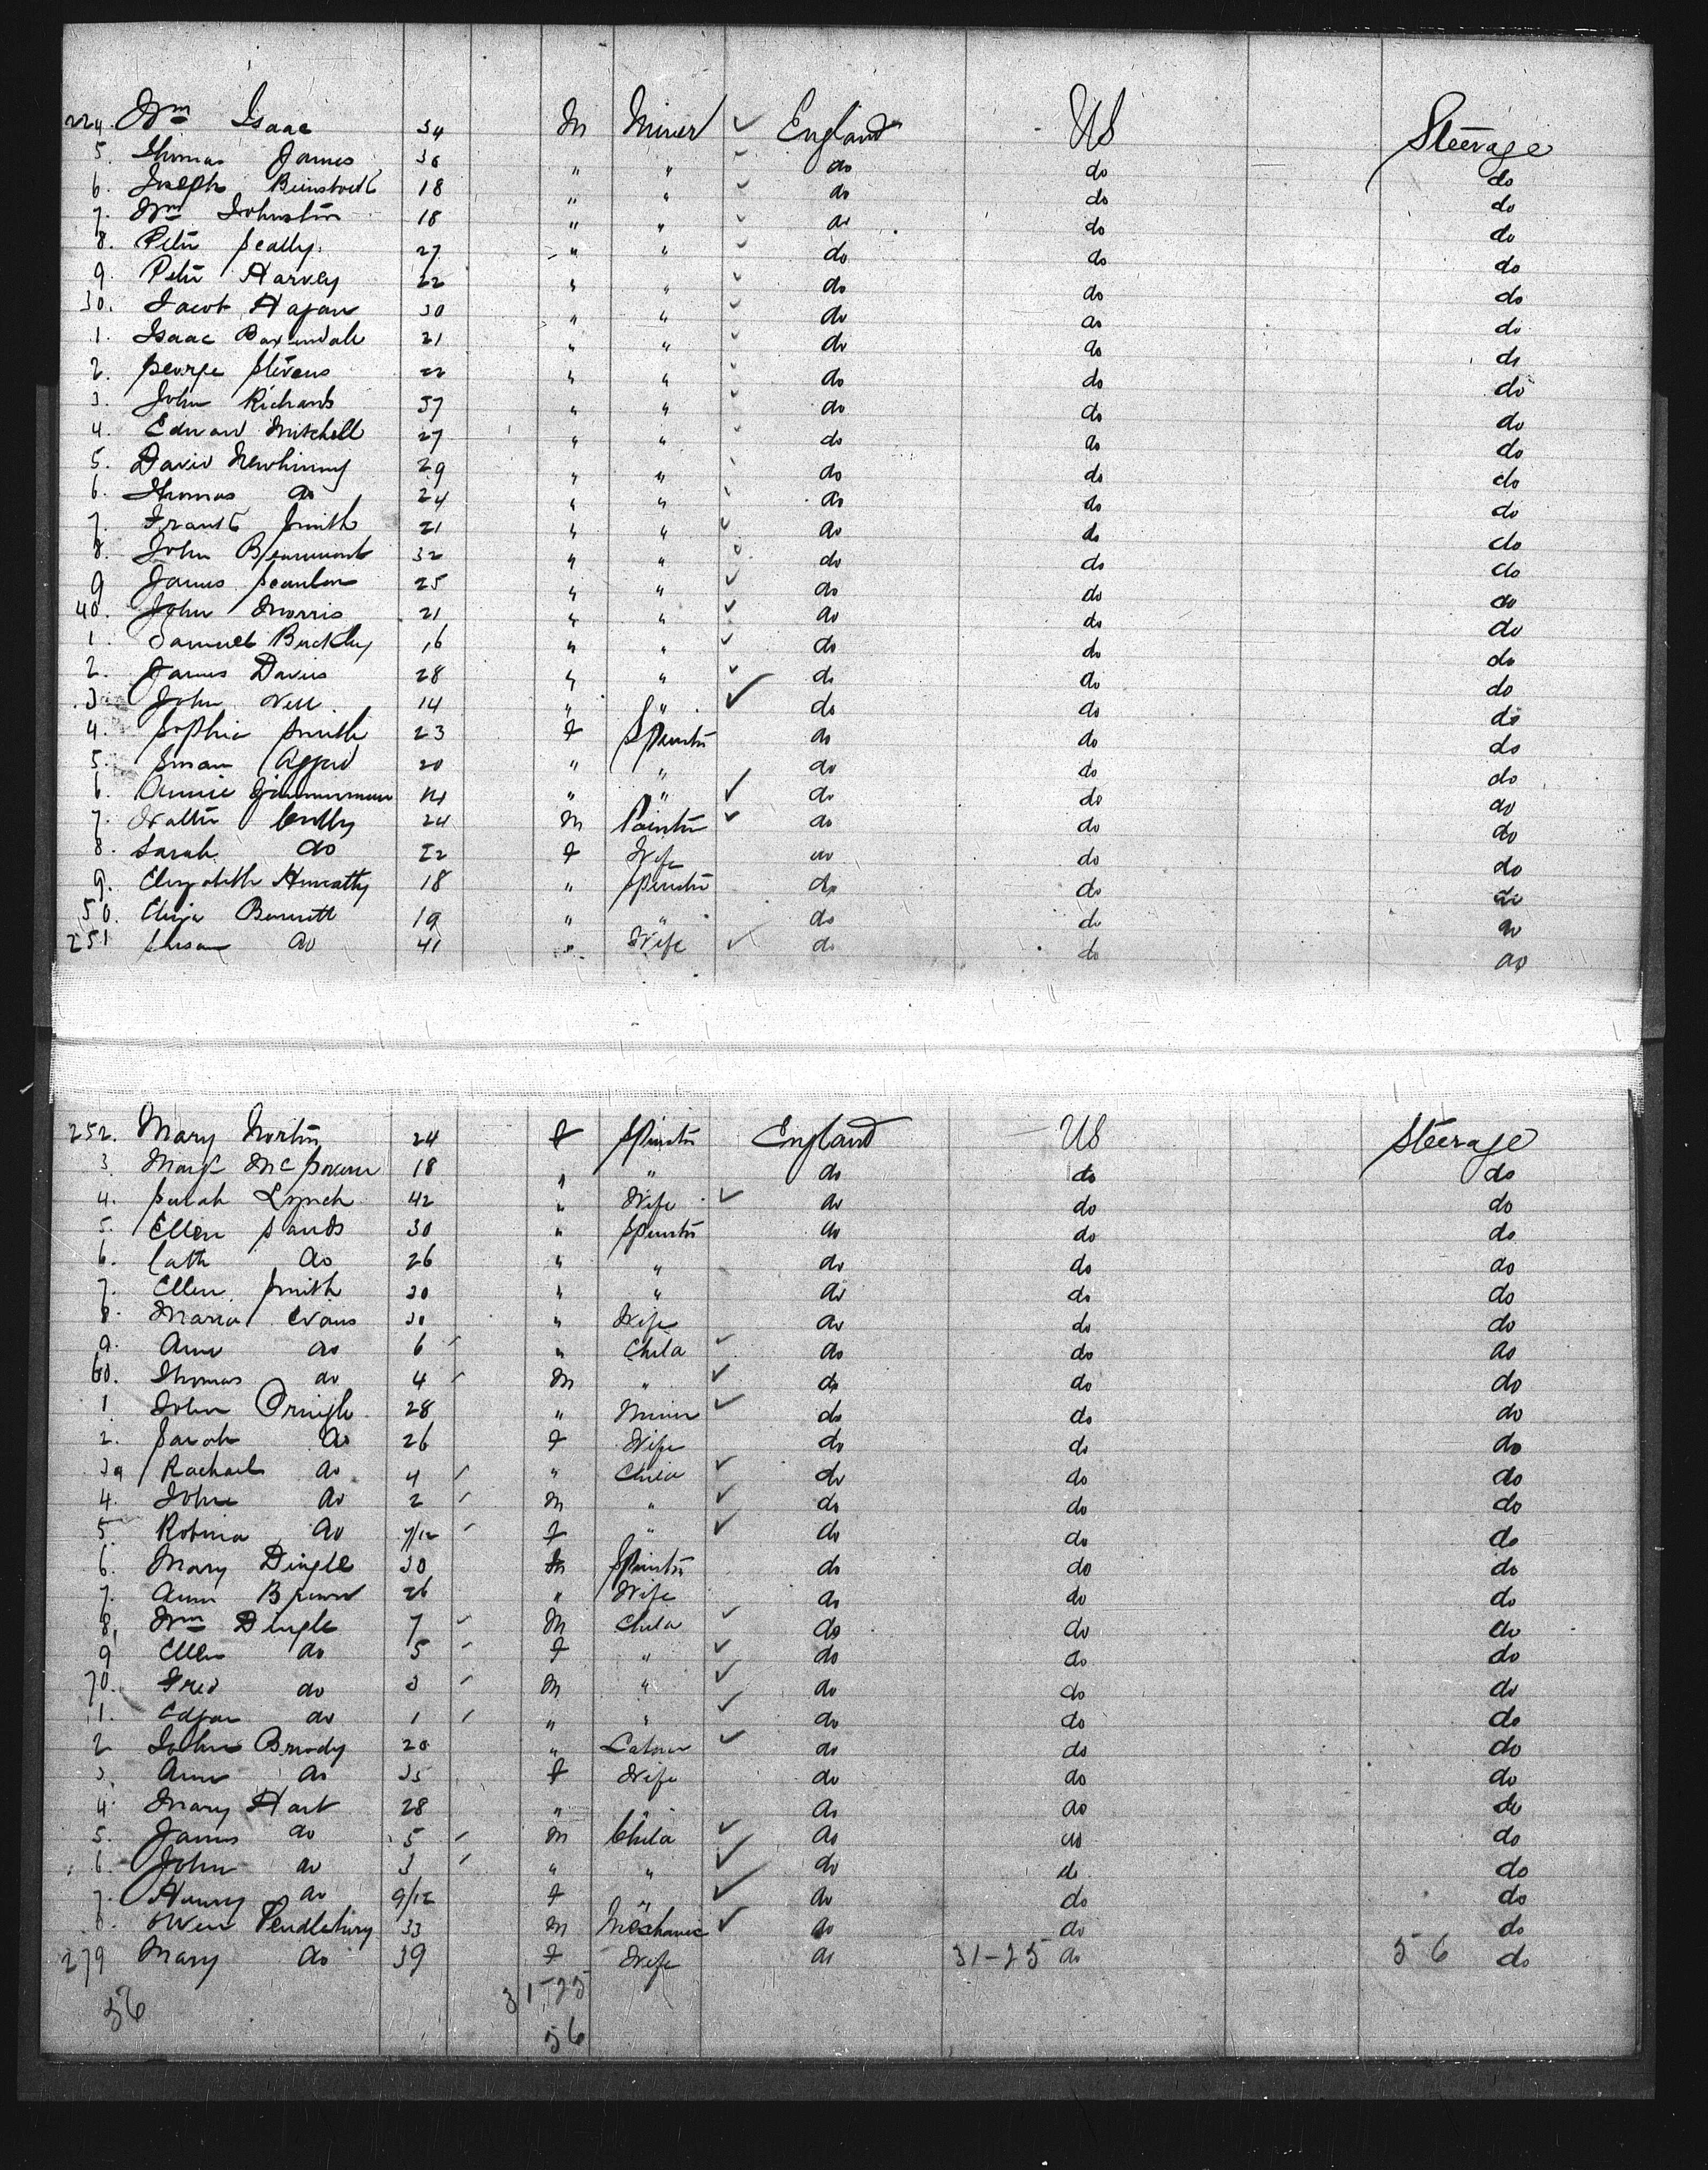 224. Wm Isaac 34 M Miner ✓ England US Steerage
5. Thomas James 36 " " ✓ do do do
6. Joseph 18 " " ✓ do do do
7. Wm Johnston 18 " " ✓ do do do
8. Peter Scally 27 " " ✓ do do do
9. Peter Harvey 22 " " ✓ do do do
30. Jacob Hagan 30 " " ✓ do do do
1. Isaac Baxendale 21 " " ✓ do do do
2. George Stevens 22 " " ✓ do do do
3. John Richards 37 " " ✓ do do do
4. Edward Mitchell 27 " " ✓ do do do
5. David 29 " " do do do
6. Thomas do 24 " " do do do
7. Frank Smith 21 " " ✓ do do do
8. John Beaumont 32 " " ✓ do do do
9 James Scanlon 25 " " ✓ do do do
40. John Morris 21 " " ✓ do do do
1. Samuel Buckley 16 " " ✓ do do do
2. James Davies 28 " " ✓ do do do
3. John 14 " " ✓ do do do
4. Sophia Smith 23 F Spinster do do do
5. Susan 20 " " do do do
6. Annie Zimmerman " " ✓ do do do
7. Walter 24 M Painter ✓ do do do
8. Sarah do 22 F Wife do do do
9. Elizabeth 18 " Spinster do do do
50. Eliza Bennett 19 " " do do do
251 Susan do 41 " Wife ✓ do do do
252. Mary Norton 24 F Spinster England US Steerage
3. Margt McGovern 18 " " do do do
4. Sarah Lynch 42 " Wife ✓ do do do
5. Ellen Sands 30 " Spinster do do do
6. Cath do 26 " " do do do
7. Ellen Smith 20 " " do do do
8. Maria Evans 30 " Wife do do do
9. Ann do 6 " Child ✓ do do do
60. Thomas do 4 M " ✓ do do do
1 John Pringle 28 " Miner ✓ do do do
2. Sarah do 26 F Wife do do do
3 Rachael do 4 " Child ✓ do do do
4. John do 2 M " ✓ do do do
5 Robina do 7/12 F " ✓ do do do
6. Mary Dingle 30 Spinster do do do
7. Ann Brown 26 " Wife do do do
8. Wm Dingle 7 M Child ✓ do do do
9 Ellen do 5 F " ✓ do do do
70. Fred do 3 M " ✓ do do do
1. Edgar do 1 " " ✓ do do do
2 John Brady 28 " Labour ✓ do do do
3. Ann do 35 F Wife do do do
4. Mary Hart 28 " " do do do
5. James do 5 M Child ✓ do do do
6. John do 3 " " ✓ do do do
7. do 9/12 F " ✓ do do do
8. Owen Pendlebury 33 M Mechanic ✓ do do do
279 Mary do 39 F Wife do 31-25 do 56 do
56 31-25
56